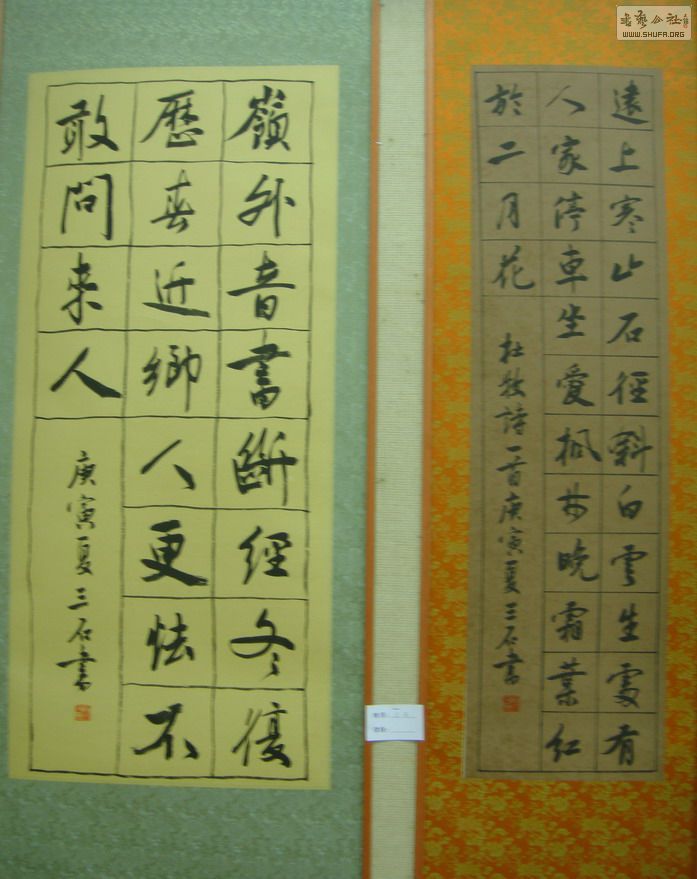 遠上寒山石徑斜白雲生處有
人家停車坐愛楓林晚霜葉紅
於二月花
杜牧詩一首庚寅夏三石書
嶺外音書斷經冬復
歷春近鄉人更怯不
敢問来人
庚寅夏三石書
書藝公社
WWW.SHUFA.ORG